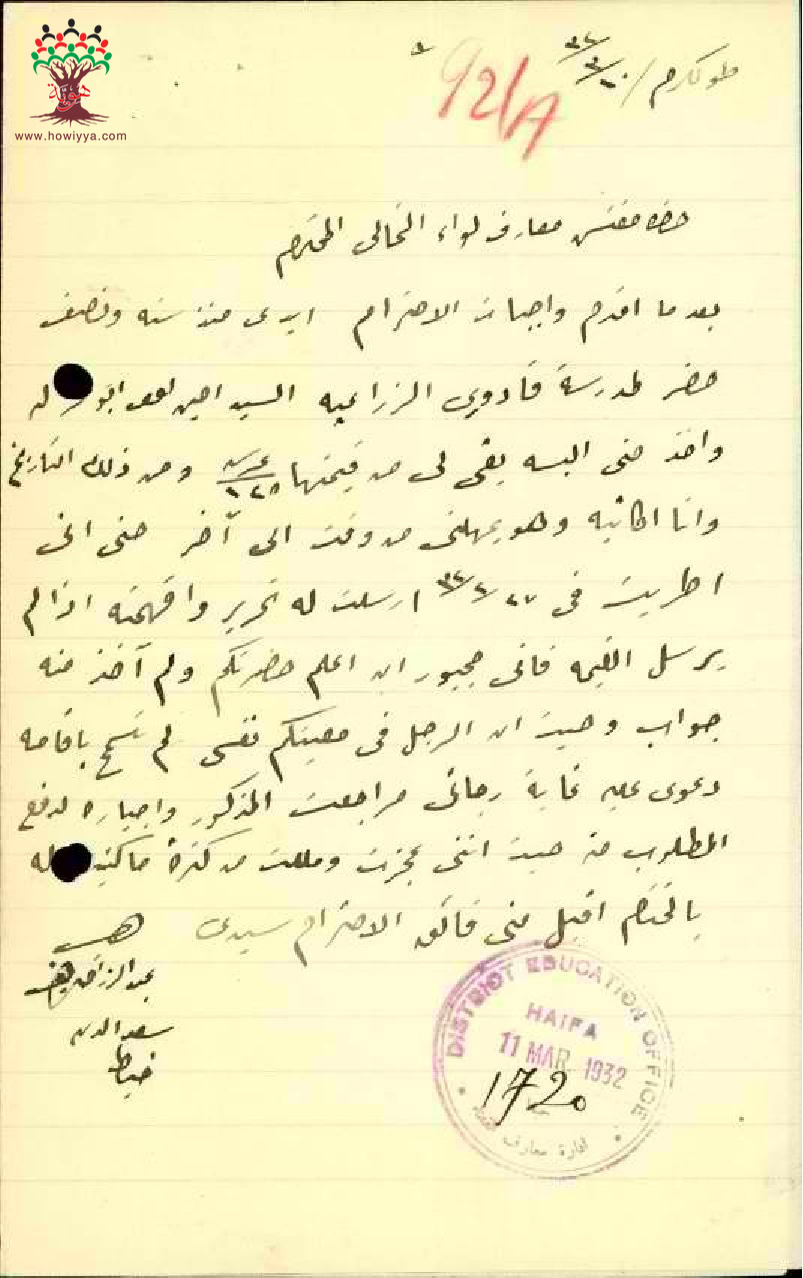 هوية
www.howiyya.com
92/A
طولكرم / ١٠/٣/٣٢
حضرة مفتش معارف لواء الشمالي المحترم
بعد ما اقدم واجبات الاحترام ابدى منذ سنه ونصف
حضر لمدرسة قادورى الزراعيه السيد امين
واخذ منى البسه بقى لى من قيمتها ومن ذلك التاريخ
وانا اطالبه وهو يمهلنى من وقت الى آخر حتى انى
اطريت فى ٢٧/٢/٣٢ ارسلت له تحرير وافهمته اذا لم
يرسل القيمه فانى مجبور ان اعلم حضرتكم ولم آخذ منه
جواب وحيث ان الرجل فى معيتكم نفسى لم تسمح باقامه
دعوى عليه غاية رجائى مراجعت المذكور واجباره لدفع
المطلوب منه حيث اننى عجزت ومللت من كثرة ماكتبت له
بالختام اقبل منى فائق الاحترام سيدى
عبد الرزاق
سعد الدين
خياط
DISTRICT EDUCATION OFFICE
HAIFA
11 MAR 1932
1720
ادارة معارف